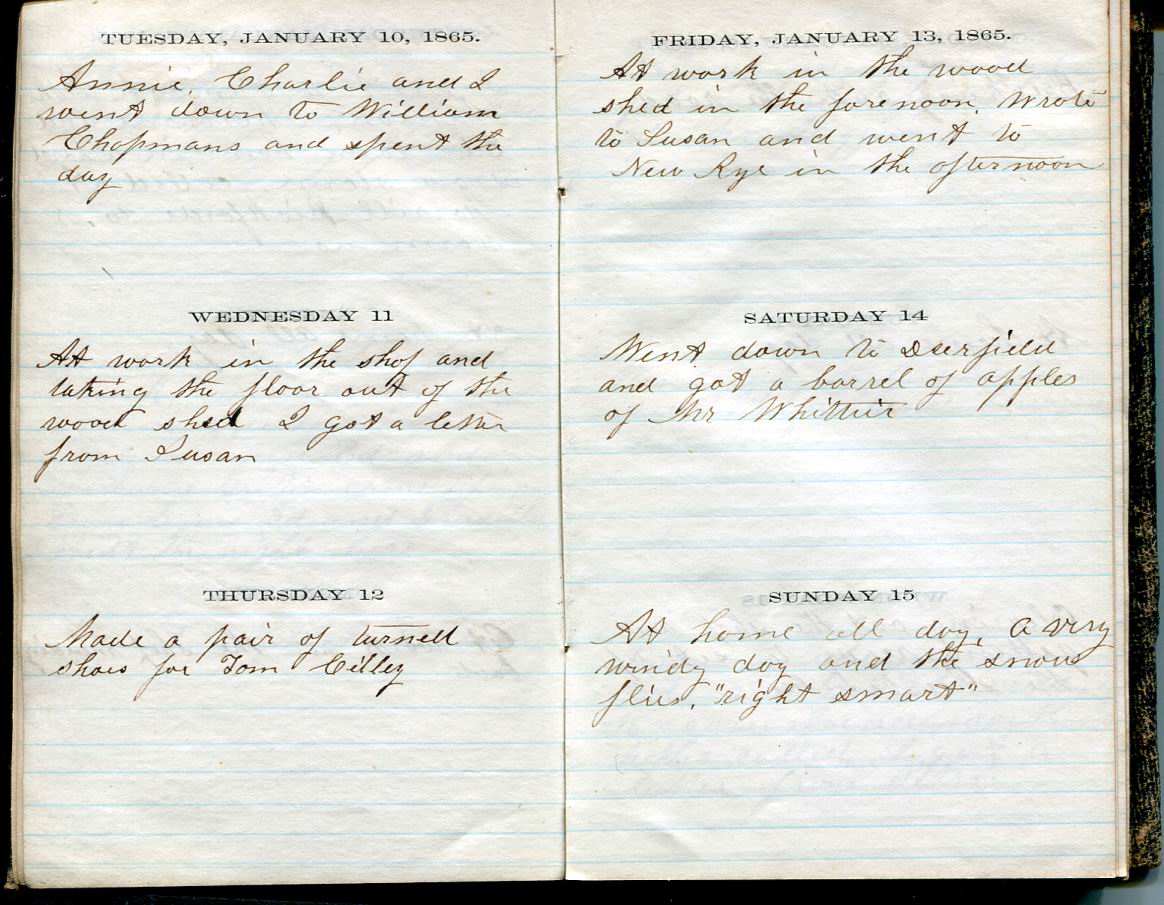 TUESDAY, JANUARY 10, 1865.
Annie, Charlie and I
went down to William
Chapmans and spent the
day
WEDNESDAY 11
At work in the shop and
taking the floor out of the
wood shed I got a letter
from Susan
THURSDAY 12
Made a pair of turned
shoes for Tom Cilley
FRIDAY, JANUARY 13, 1865.
At work in the wood
shed in the forenoon, Wrote
to Susan and went to
New Rye in the afternoon
SATURDAY 14
Went down to Deerfield
and got a barrel of apples
of Mr Whittier
SUNDAY 15
At home all day, a very
windy day and the snow
flies, "right smart"